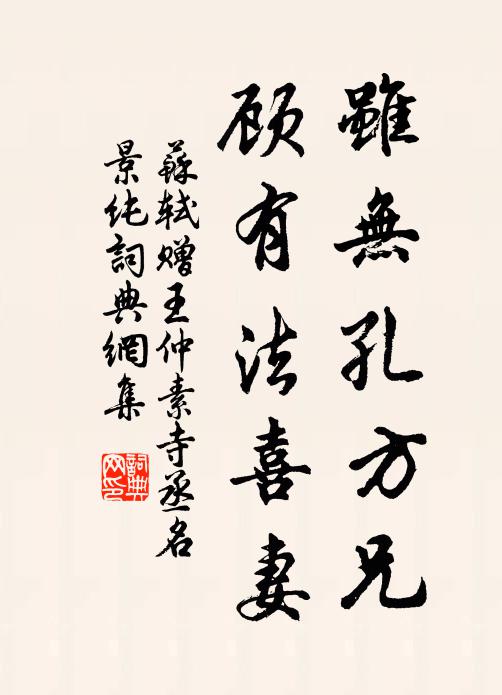 雖無孔方兄
顧有法喜妻
蘇軾贈王仲素寺丞名
景純詞典網集
詞典网印